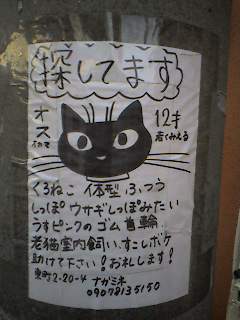 探してます
オス
12才
若くみえる
くろねこ 体型 ふつう
しっぽ ウサギしっぽみたい
うすピンクのゴム首輪
老猫室内飼い、すこしボケ
助けて下さい！お礼します！
東町2-20-4 ナガミネ
09078135150